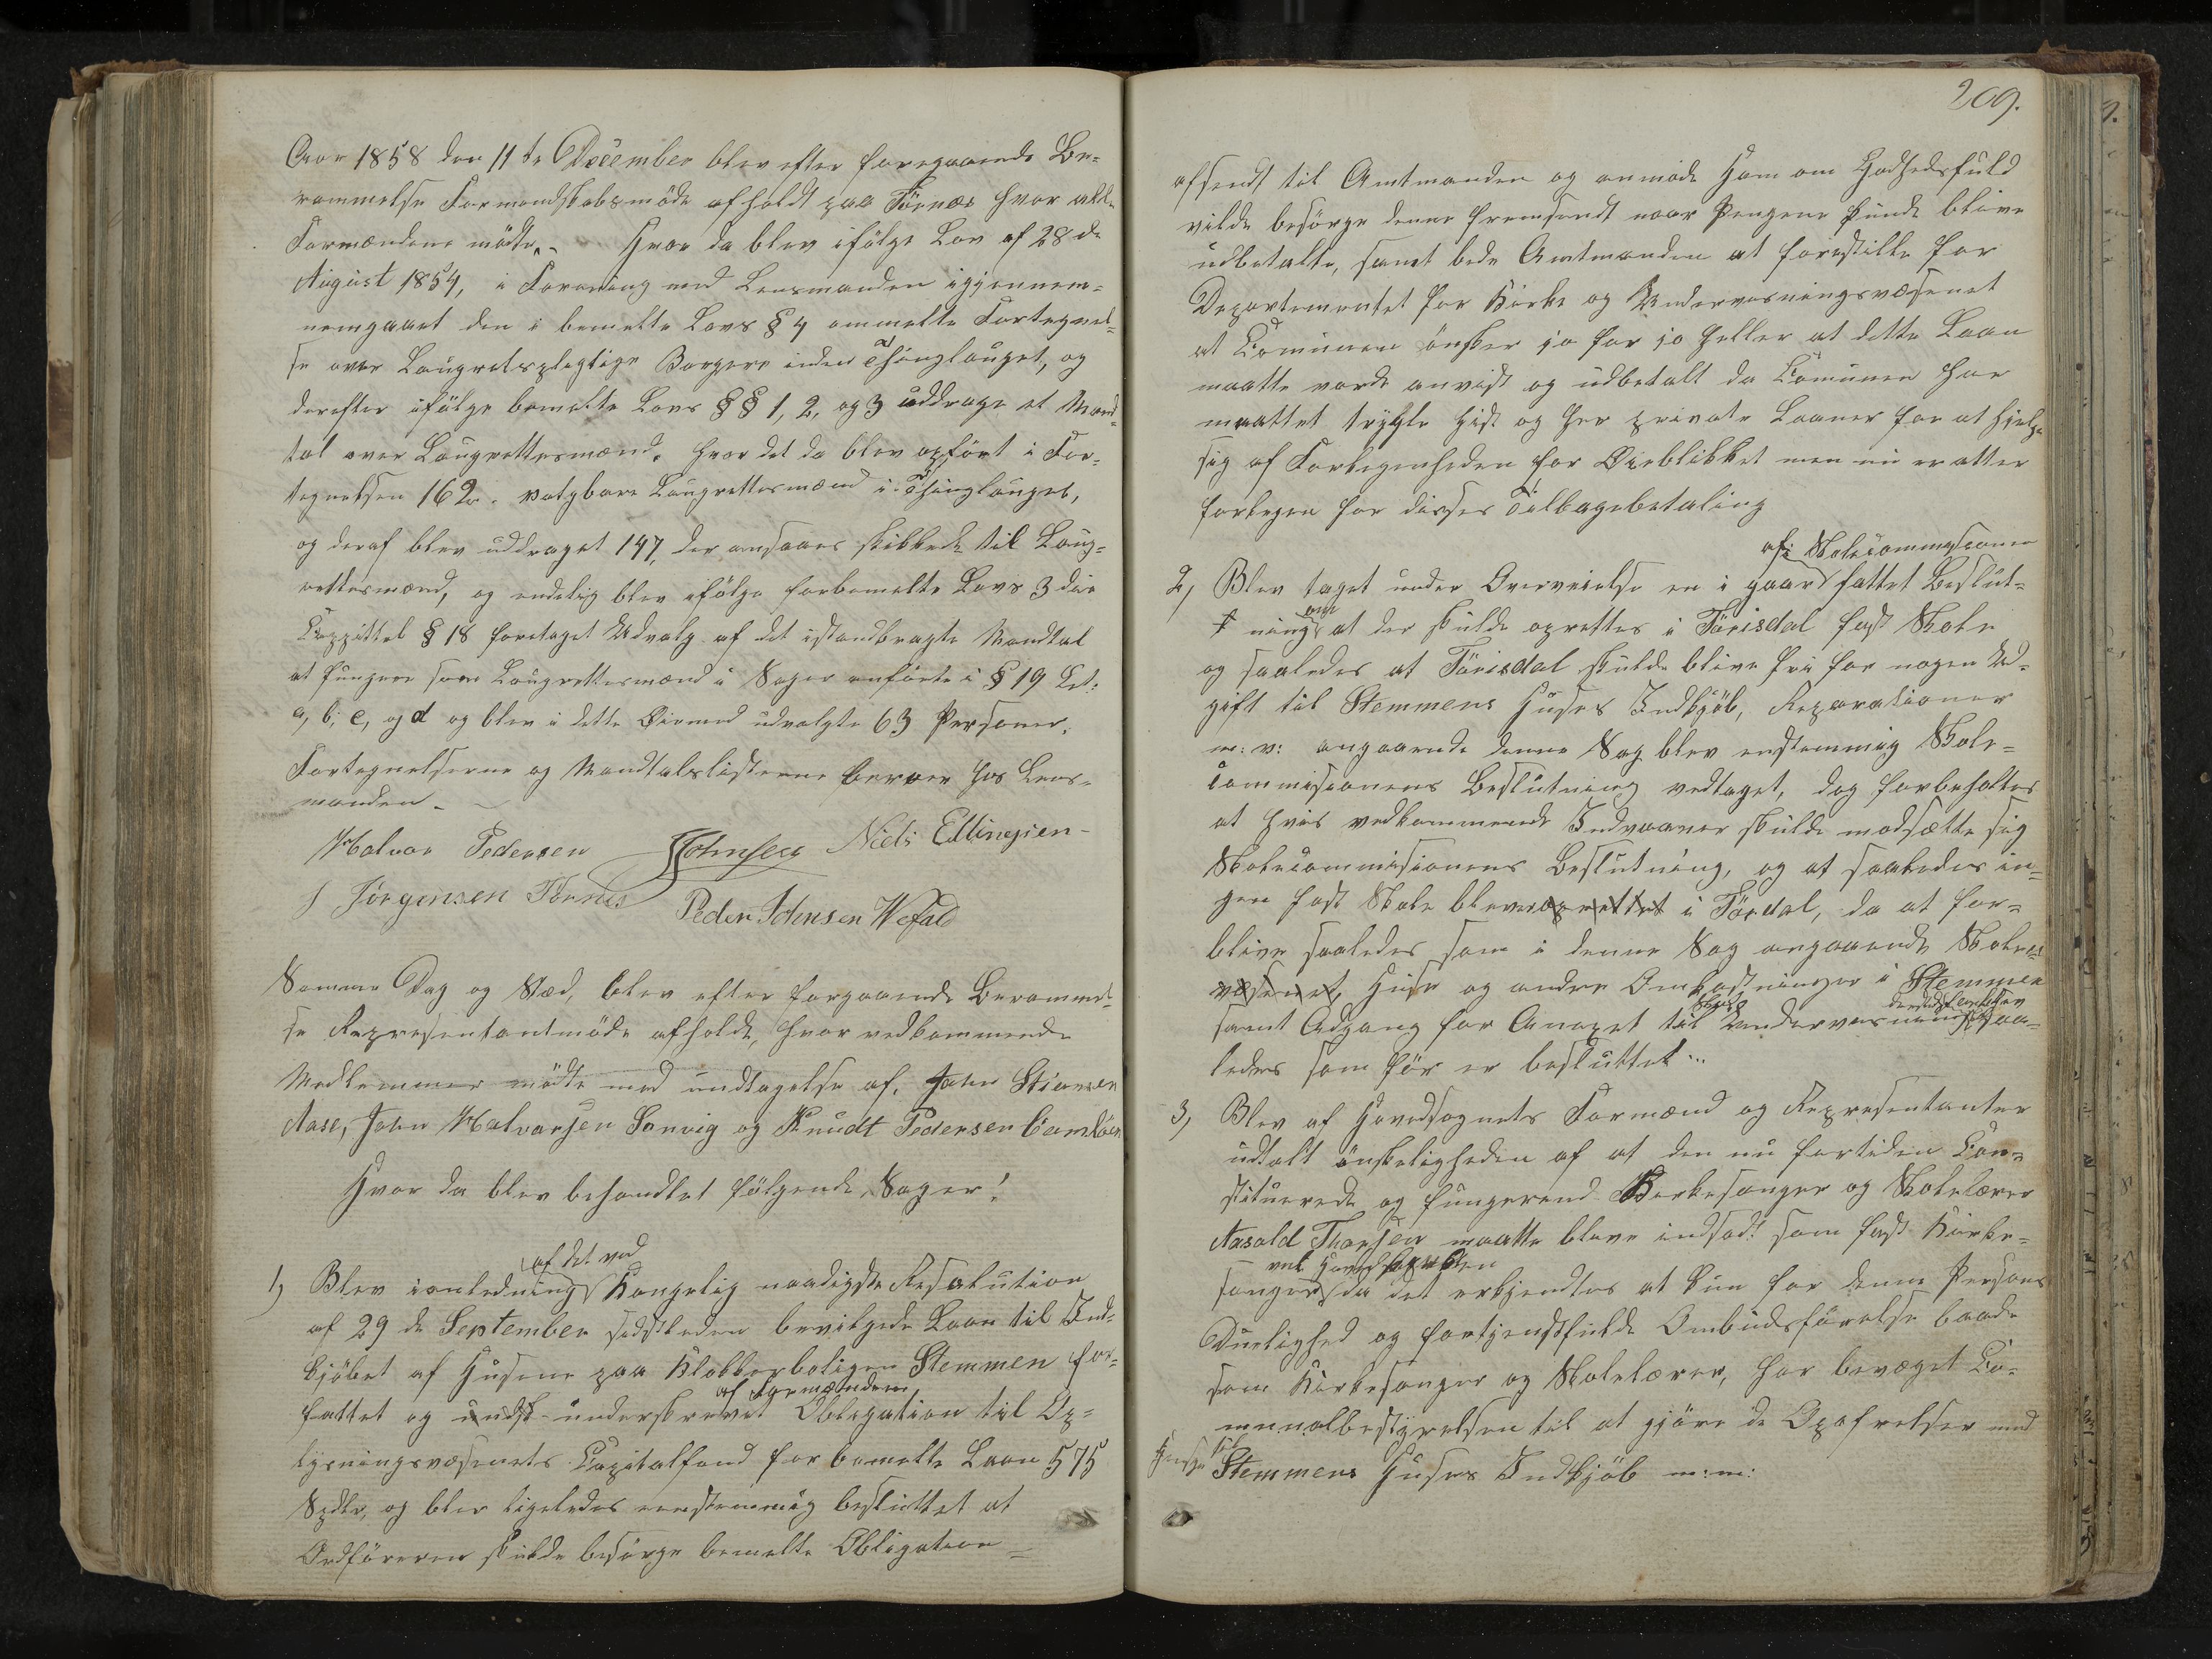 Aar 1858 den 11te December blev efter foregaaende Be-
rammelse Formandskabsmöde afholdt paa Törnæs hvor alle
Formændene mödte. Hvor da blev ifölge Lov af 28de
August 1854, i Forening med Lensmanden igjennem-
nemgaaet den i bemelte Lovs § 4 ommelte Fortegnel-
se over Laugretspligtige Borgere inden Thinglauget, og
derefter ifölge bemelte Lovs §§ 1, 2, og 3 uddrage et Mand-
tal over Laugrettesmænd. Hvor det da blev opfört i For-
tegnelsen 162. valgbare Laugrettesmænd i Thinglauget,
og deraf blev uddraget 147, der ansaaes skikkede til Laug-
rettesmænd, og endelig blev ifölge forbemelte Lovs 3die
Cappittel § 18 foretaget Udvalg af det istandbragte Mandtal
at fungere som Laugrettesmænd i Sager anförte i § 19 Lit:
a, b, c, og d og blev i dette Öiemed udvalgte 63 Personer.
Fortegnelserne og Mandtalslisterne beroer hos Lens-
manden.
Halvor Pedersen JJohnsen Niels Ellingsen
J Jörgensen Törnes Peder Johnsen Wefald
Samme Dag og Stæd, blev efter forgaaende Berammel-
se Representantmöde afholdt, hvor vedkommende
Medlemmer mödte med undtagelse af, John Stiansen
Aase, John Halvorsen Sanvig og Knudt Pedersen
Hvor da blev behandlet fölgende Sager!
af det ved
1) Blev i anledning Kongelig naadigste Resolution
af 29de September sidstleden bevilgede Laan til Ind-
kjöbet af Husene paa Klokkerboligen Stemmen for-
af Formændene
fattet og undsk underskrevet Obligation til Op-
lysningsvæsenets Capitalfond for bemelte Laan 575
Spdlr, og blev ligeledes eenstemmig besluttet at
Ordföreren skulde besörge bemelte Obligation
209.
afsendt til Amtmanden og anmode Ham om Godhedsfuld
vilde besörge denne fremsendt naar Pengene kunde blive
udbetalte, samt bede Amtmanden at forestille for
Departementet for Kirke og Undervisningsvæsenet
at Comunen önsker jo för jo heller at dette Laan
maatte vorde anvist og udbetalt da Comunen har
maattet trygle hist og her private Laaner for at hjelpe
sig af Forlegenheden for Öieblikket men nu er atter
forlegen for disses Tilbagebetaling
af Skolecommissionen
2) Blev taget under Overveielse en i gaar fattet Beslut-
om
ning at der skulde oprettes i Törisdal fast Skole
og saaledes at Törisdal skulde blive fri for nogen Ud-
gift til Stemmens Huses Indkjöb, Reparationer
m: v: angaaende denne Sag blev enstemmig Skole-
commisionens Beslutning vedtaget, dog forbeholtes
at hvis vedkommende Indvaaner skulde modsætte sig
Skolecommisionens Beslutning, og at saaledes in-
gen fast Skole blever oprettet i Tördal, da at for-
blive saaledes som i denne Sag angaaende Skole-
væsenet, Huse og andre Omkostninger i Stemmen
samt Adgang for Anexet til Undervisning saa-
ledes som för er besluttet
3) Blev af Hovedsognets Formænd og Representanter
udtalt önskeligheden af at den nu fortiden Con-
stituerede og fungerend Kirkesanger og Skolelærer
Aasold Thorsen maatte bleve indsadt som fast Kirke-
ved Hovedkirken
sanger da det erkjendtes at kun for denne Persons
Duelighed og fortjenstfulde Ombudsförelse baade
som Kirkesanger og Skolelærer, har bevæget Co-
munalbestyrelsen til at gjöre de Opofrelser med
Hensyn til Stemmens Huses Indkjöb m: m: